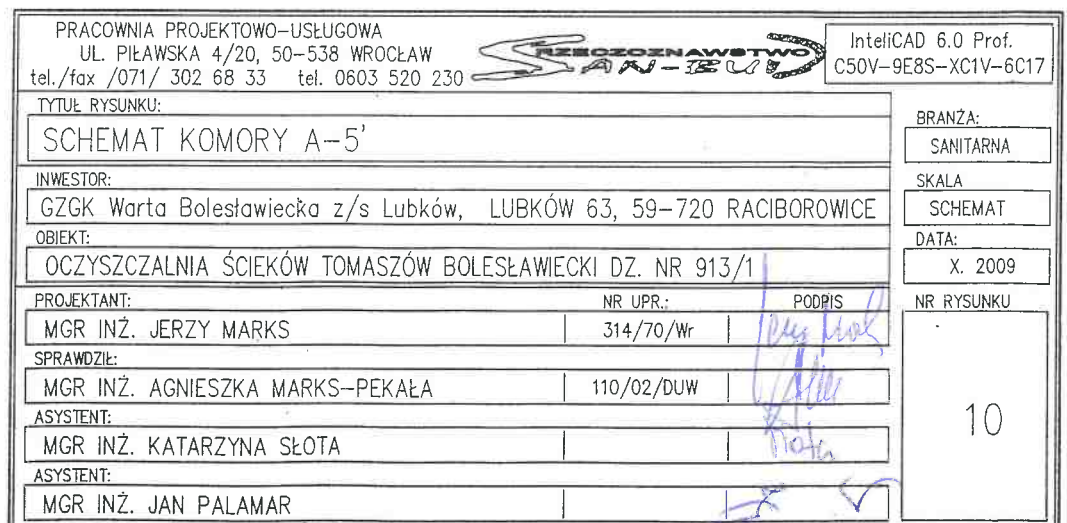 PRACOWNIA PROJEKTOWO-USŁUGOWA
UL. PIŁAWSKA 4/20, 50-538 WROCŁAW
tel./fax /071/ 302 68 33 tel. 0603 520 230
RZECZOZNAWSTWO
SAN-BUD
InteliCAD 6.0 Prof.
C50V-9E8S-XC1V-6C17
TYTUŁ RYSUNKU:
SCHEMAT KOMORY A-5'
BRANŻA:
SANITARNA
INWESTOR:
GZGK Warta Bolesławiecka z/s Lubków, LUBKÓW 63, 59-720 RACIBOROWICE
SKALA
SCHEMAT
OBIEKT:
OCZYSZCZALNIA ŚCIEKÓW TOMASZÓW BOLESŁAWIECKI DZ. NR 913/1
DATA:
X. 2009
PROJEKTANT: NR UPR.: PODPIS
MGR INŻ. JERZY MARKS 314/70/Wr
NR RYSUNKU
10
SPRAWDZIŁ:
MGR INŻ. AGNIESZKA MARKS-PEKAŁA 110/02/DUW
ASYSTENT:
MGR INŻ. KATARZYNA SŁOTA
ASYSTENT:
MGR INŻ. JAN PALAMAR